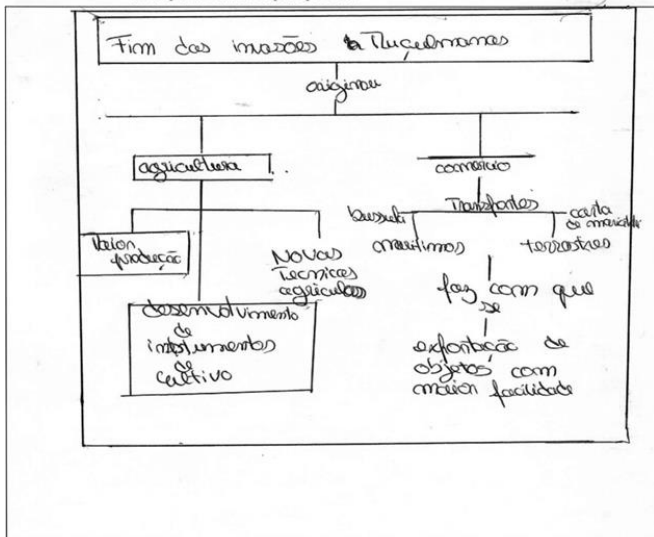 Fim das invasões Muçulmanas
originou
agricultura
comercio
Maior
produção
Novas
Tecnicas
agriculas
desenvolvimento
de
instrumentos
de
cultivo
Transportes
bussula
carta
de
maritimos
terrostres
faz com que
se
exportação de
objetos com
maior facilidade